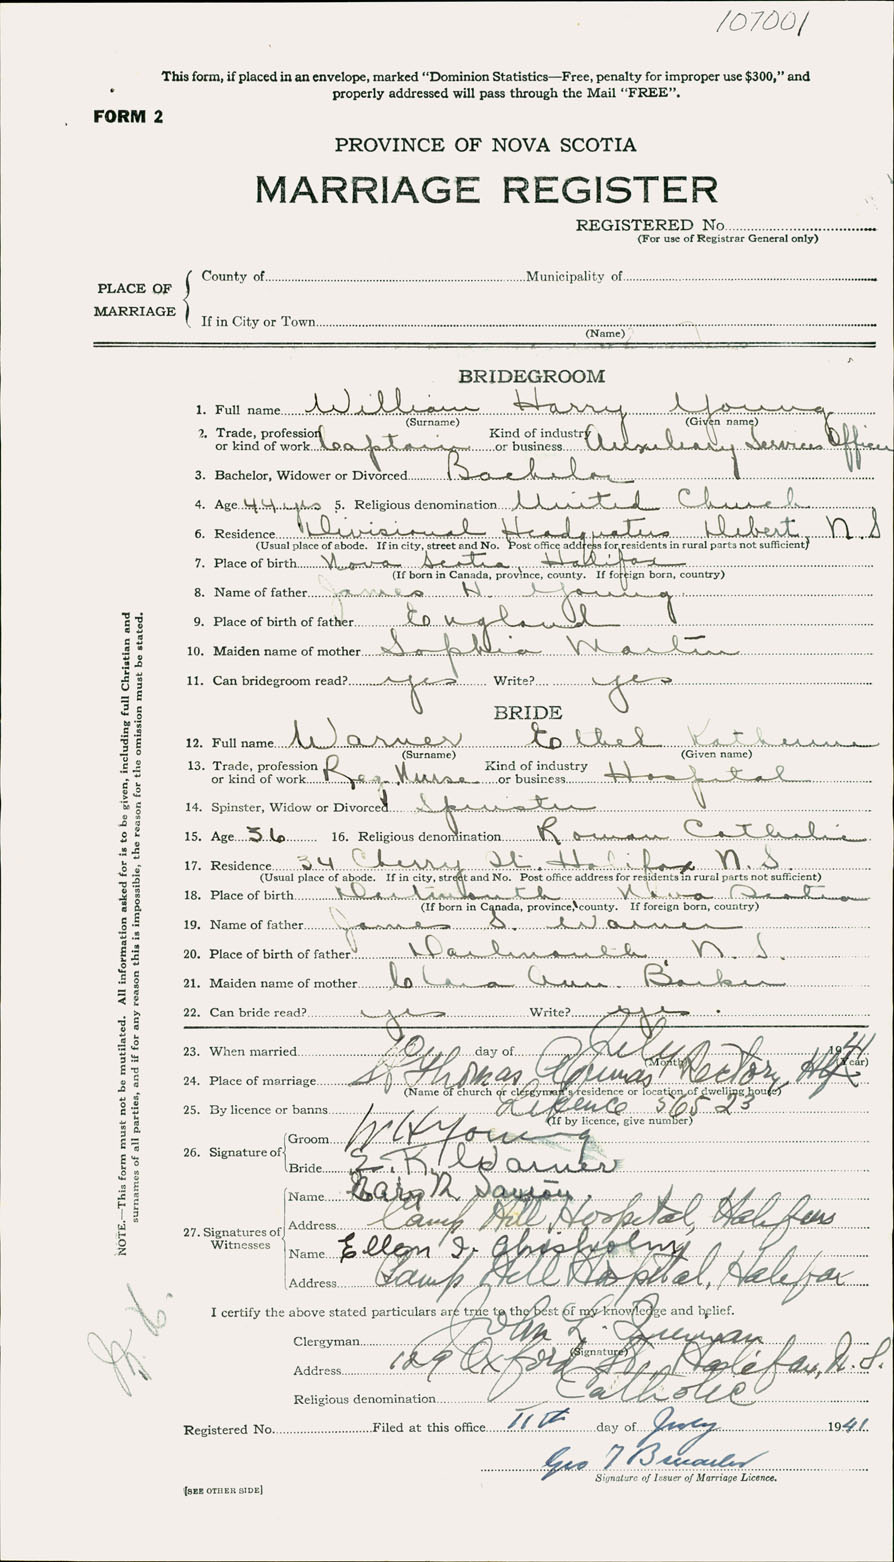 107001
This form, if placed in an envelope, marked "Dominion Statistics—Free, penalty for improper use $300," and
properly addressed will pass through the Mail "FREE".
FORM 2
PROVINCE OF NOVA SCOTIA
MARRIAGE REGISTER
REGISTERED No.
(For use of Registrar General only)
PLACE OF MARRIAGE
County of Municipality of
If in City or Town
(Name)
BRIDEGROOM
1. Full name William Harry Young
(Surname) (Given name)
2. Trade, profession or kind of work Captain Kind of industry or business Auxiliary Services Officer
3. Bachelor, Widower or Divorced Bachelor
4. Age 44 yrs 5. Religious denomination United Church
6. Residence Divisional Headquaters Debert, N.S
(Usual place of abode. If in city, street and No. Post office address for residents in rural parts not sufficient)
7. Place of birth Nova Scotia Halifax
(If born in Canada, province, county. If foreign born, country)
8. Name of father James H. Young
9. Place of birth of father England
10. Maiden name of mother Sophia Martin
11. Can bridegroom read? yes Write? yes
BRIDE
12. Full name Warner Ethel Katherine
(Surname) (Given name)
13. Trade, profession or kind of work Reg. Nurse Kind of industry or business Hospital
14. Spinster, Widow or Divorced Spinster
15. Age 36 16. Religious denomination Roman Catholic
17. Residence 34 Cherry St. Halifax N.S.
(Usual place of abode. If in city, street and No. Post office address for residents in rural parts not sufficient)
18. Place of birth Dartmouth Nova Scotia
(If born in Canada, province, county. If foreign born, country)
19. Name of father James S. Warner
20. Place of birth of father Dartmouth, N.S.
21. Maiden name of mother Clara Ann. Barker
22. Can bride read? yes Write? yes.
23. When married day of July 1941
(Month) (Year)
24. Place of marriage St Thomas Aquinas Rectory, Hfx
(Name of church or clergyman's residence or location of dwelling house)
25. By licence or banns Licence 56523
(If by licence, give number)
26. Signature of
Groom W H Young
Bride E. K. Warner
27. Signatures of Witnesses
Name M.
Address Camp Hill Hospital, Halifax
Name Ellen J. Chisholm
Address Camp Hill Hospital, Halifax
I certify the above stated particulars are true to the best of my knowledge and belief.
Clergyman John L.
(Signature)
Address 129 Oxford St., Halifax, N.S.
Religious denomination Catholic
Registered No. Filed at this office 11th day of July 1941.
Geo T
Signature of Issuer of Marriage Licence.
[SEE OTHER SIDE]
NOTE.—This form must not be mutilated. All information asked for is to be given, including full Christian and
surnames of all parties, and if for any reason this is impossible, the reason for the omission must be stated.